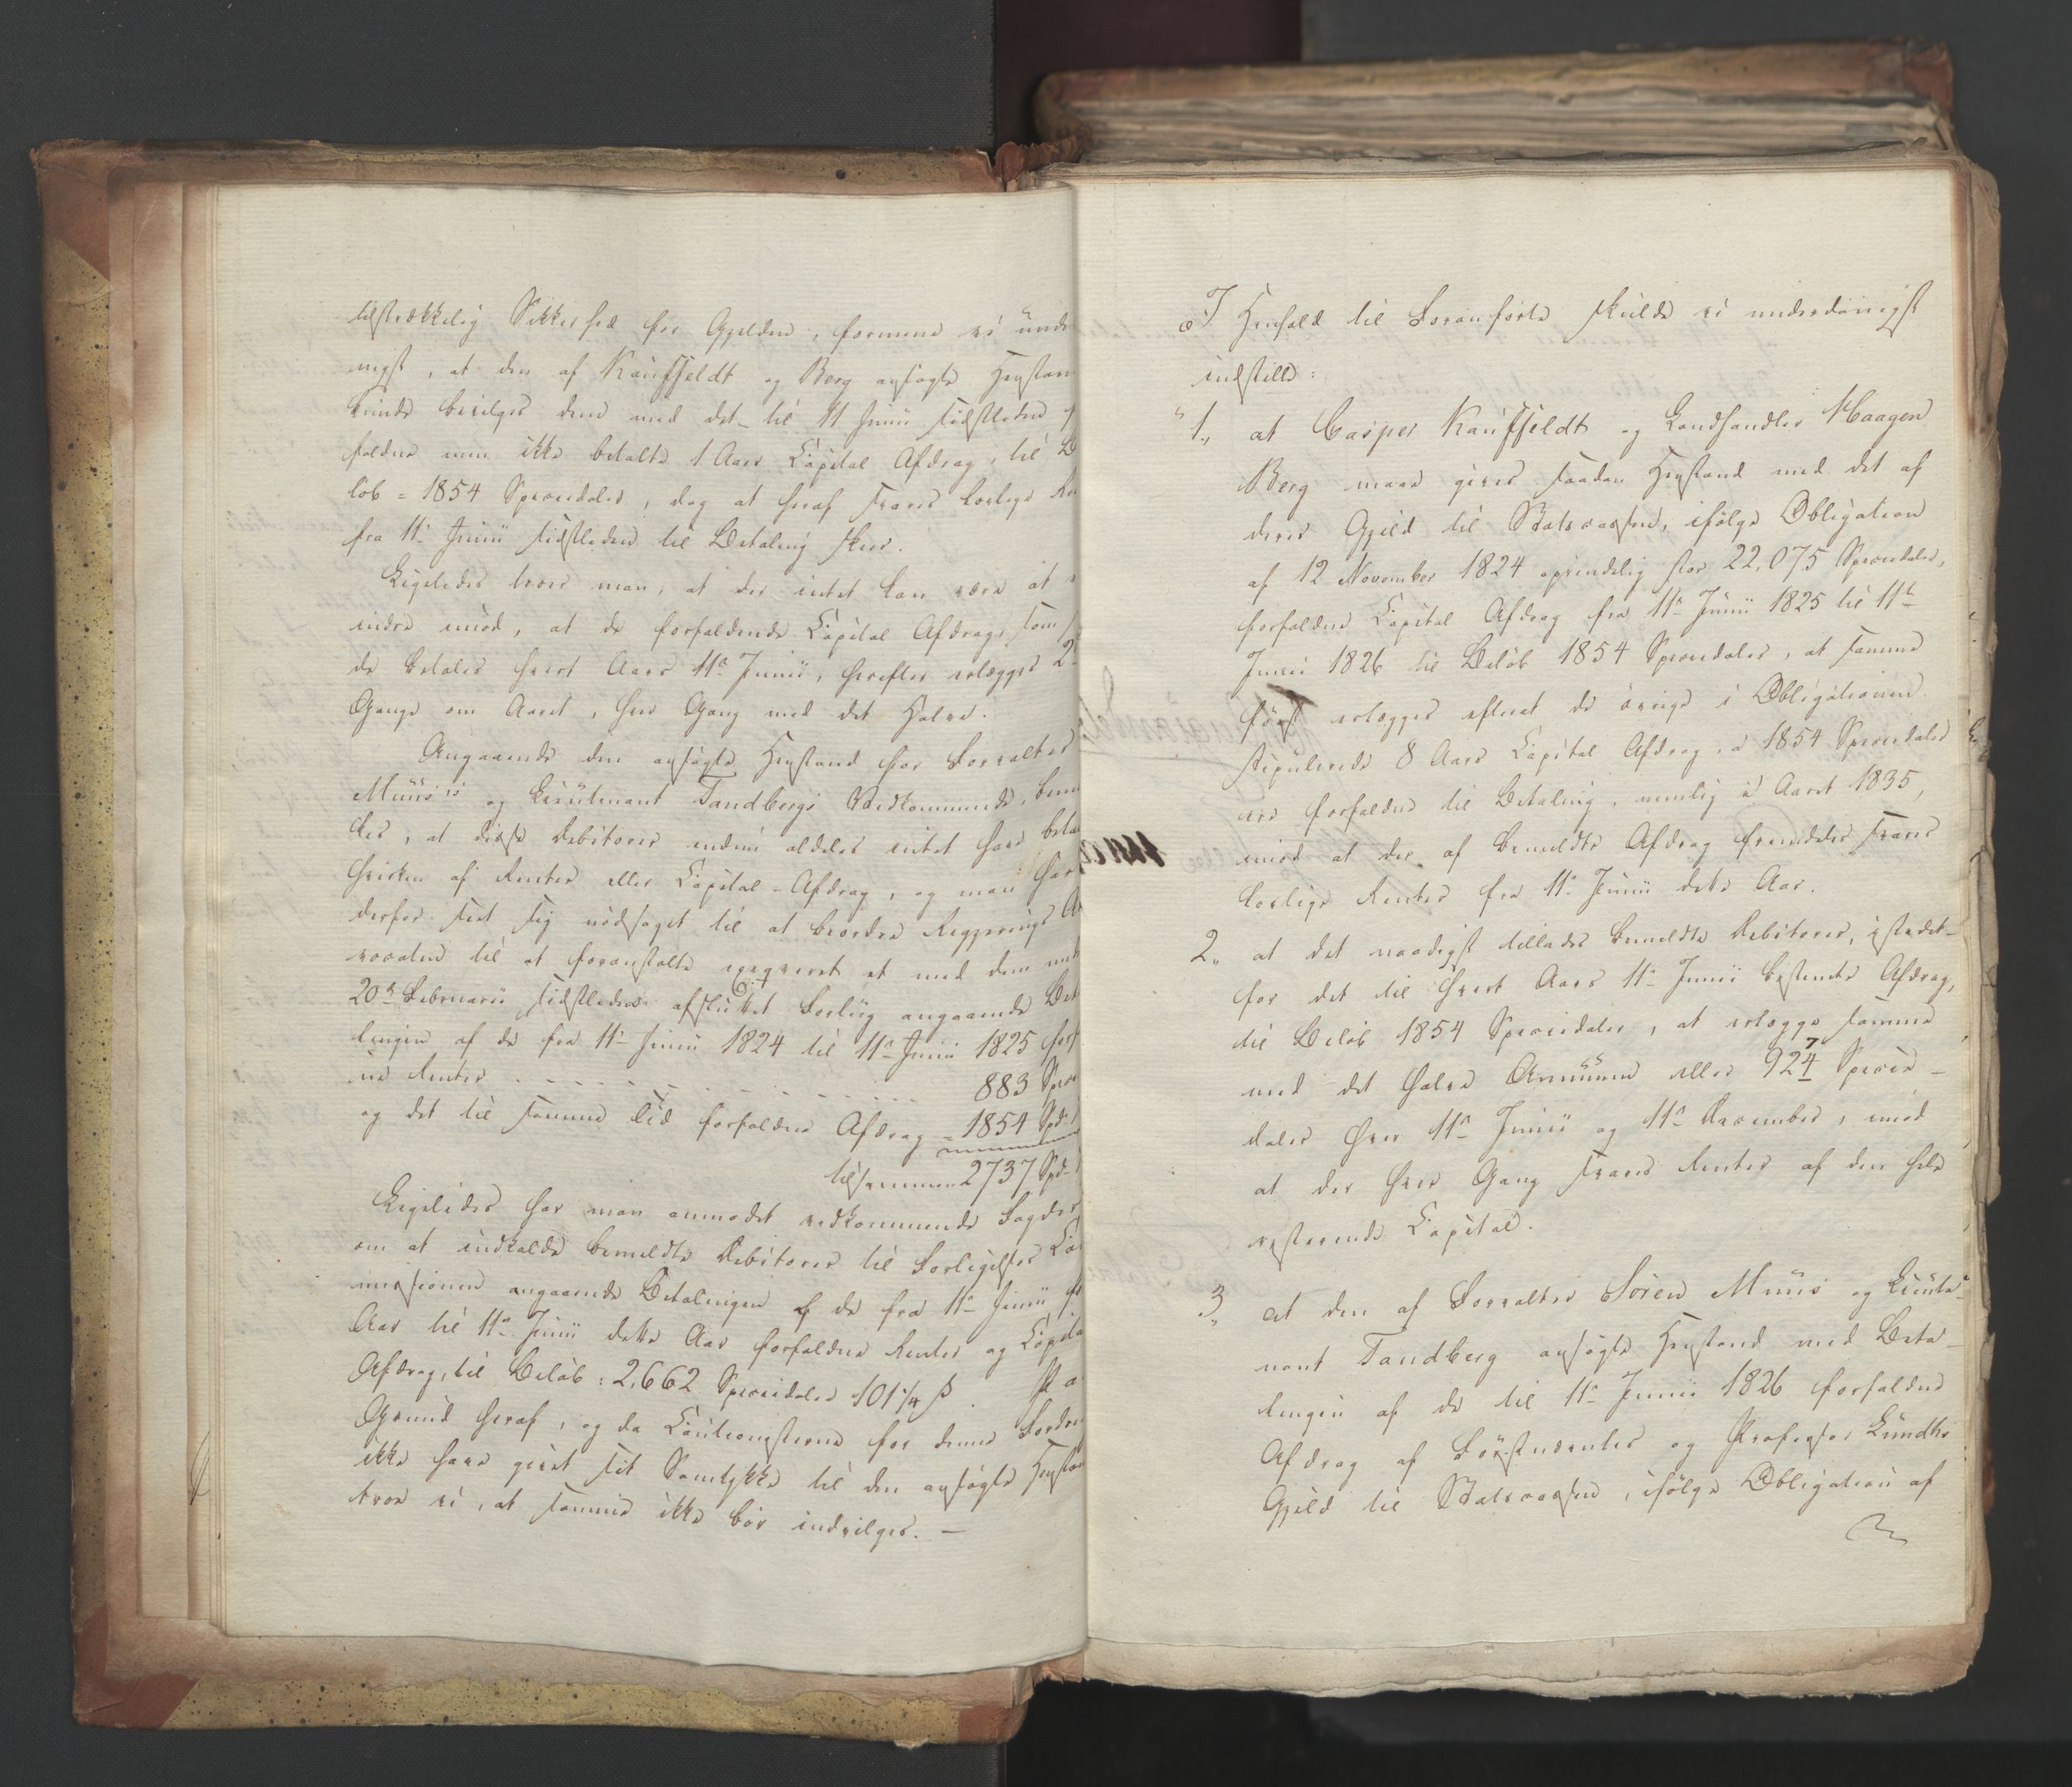 tilstrækkelig Sikkerhed for Gjelden, formene vi unde
nigst, at den af Kauffeldt og Berg ansøgte Henstan
kunde bevilges dem med det til 11 Junii sidstleden
faldne men ikke betalte 1 Aars Capital Afdrag, til B
løb = 1854 Speciedaler, dog at heraf svares lovlige Re
fra 11te Junii sidstleden til Betaling skeer.
Ligeledes troer man, at der intet kan være at
indre imod, at de forfaldende Capital Afdrag, som
de betales hvert Aars 11te Junii, herefter erlægges 2de
Gange om Aaret, hver Gang med det Halve.
Angaaende den ansøgte Henstand for Forvalter
Muus's og Lieutenant Tandbergs Vedkommende, bem
kes, at disse Debitorer endnu aldeles intet have beta
hverken af Renter eller Capital-Afdrag, og man har
derfor seet sig nødsaget til at beordre Regjerings A
vocaten til at foranstalte exeqveret et med dem un
20de Februarii sidstleden afsluttet Forliig angaaende Bet
lingen af de fra 11te Junii 1824 til 11te Junii 1825 forf
ne Renter . . . . . . . . . . . . . 883 Spec
og det til samme Tid forfaldne Afdrag = 1854 Spd
tilsammen 2737 Spd
Ligeledes har man anmodet vedkommende Foged
om at indkalde bemeldte Debitorer til Forligelses Co
missionen angaaende Betalingen af de fra 11te Junii f
Aar til 11te Junii dette Aar forfaldne Renter og Capita
Afdrag, til Beløb: 2,662 Speciedaler 101 1/4 ß. Paa
Grund heraf, og da Cautionisterne for denne Fordri
ikke have givet sit Samtykke til den ansøgte Henstan
troe vi, at samme ikke bør indvilges. —
I Henhold til Foranførte skulde vi underdanigst
indstille:
1., at Casper Kauffeldt og Landhandler Haagen
Berg maae gives saadan Henstand med det af
deres Gjeld til Statscassen, ifølge Obligation
af 12 November 1824 oprindelig stor 22,075 Speciedaler,
forfaldne Capital Afdrag fra 11te Junii 1825 til 11te
Junii 1826 til Beløb 1854 Speciedaler, at samme
først erlægges efterat de øvrige i Obligationen
stipulerede 8 Aars Capital Afdrag, a 1854 Speciedaler
ere forfaldne til Betaling, nemlig i Aaret 1835,
imod at der af bemeldte Afdrag fremdeles svares
lovlige Renter fra 11te Junii dette Aar.
2., at det naadigst tillades bemeldte Debitorer, istedet-
for det til hvert Aars 11te Junii bestemte Afdrag,
til Beløb 1854 Speciedaler, at erlægge samme
med det halve Qvantum eller 927 Specie-
daler hver 11te Junii og 11te December, imod
at der hver Gang svares Renter af den hele
resterende Capital.
3., at den af Forvalter Søren Muus og Lieute-
nant Tandberg ansøgte Henstand med Beta-
lingen af de til 11te Junii 1826 forfaldne
Afdrag af Førstnævntes og Professor Lundhs
Gjeld til Statscassen, ifølge Obligation af